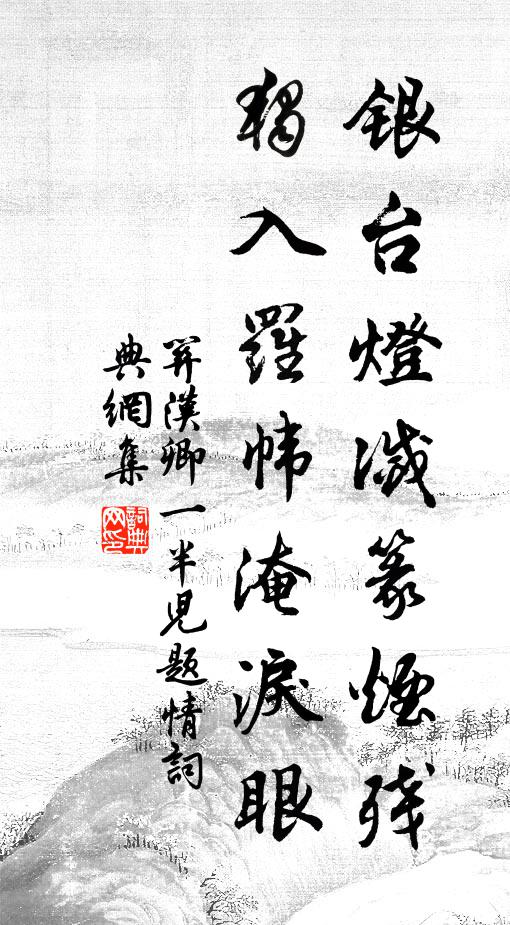 銀台燈滅篆煙殘
獨入羅幃淹淚眼
関漢卿一半児題情詞
典網集
詞典網印